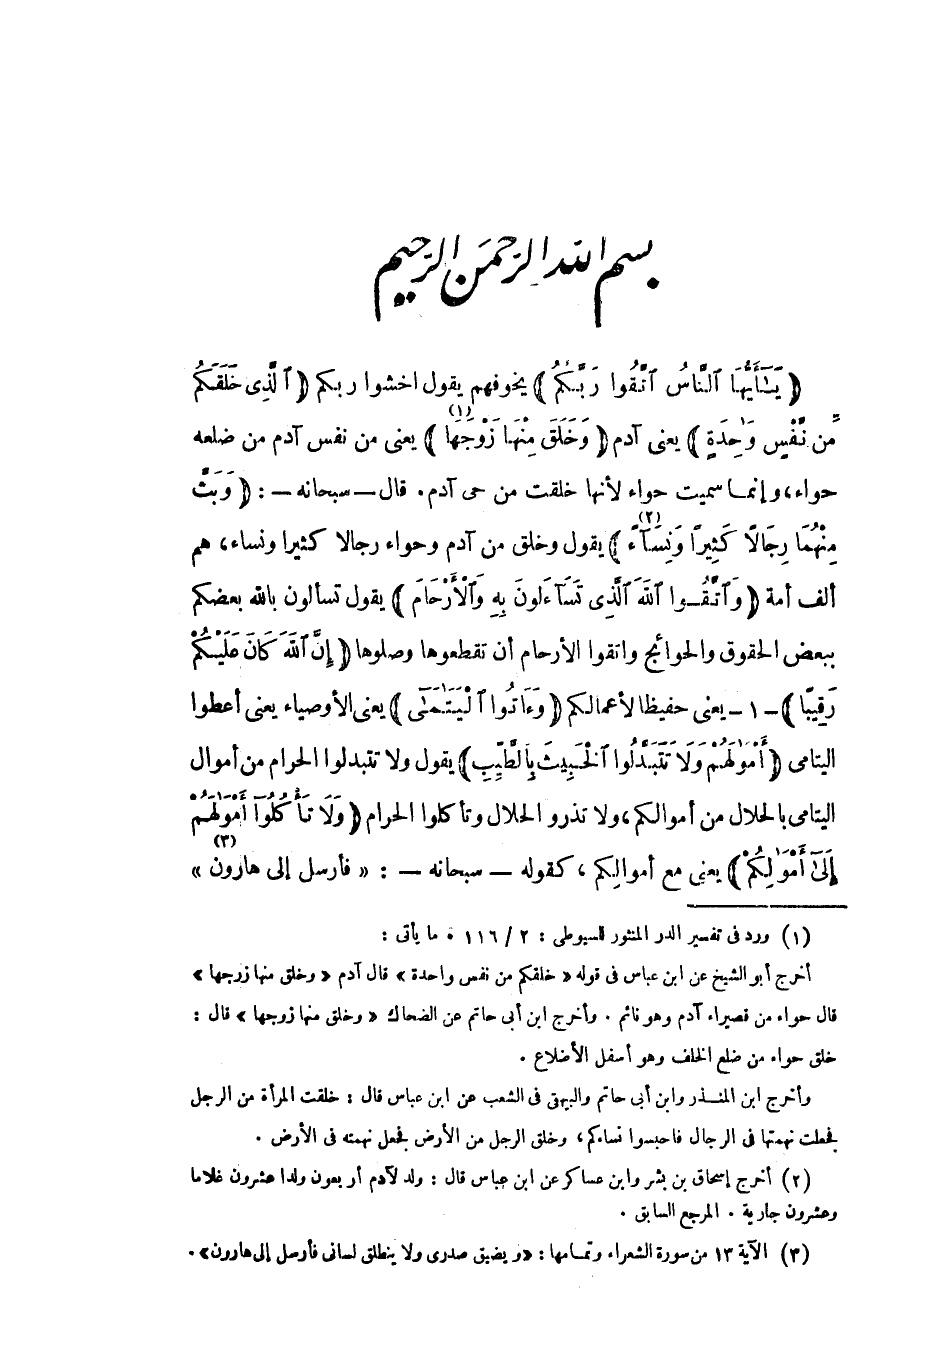 بسم الله الرحمن الرحيم
﴿ يَـٰٓأَيُّهَا ٱلنَّاسُ ٱتَّقُوا رَبَّكُمُ ﴾ يخوفهم يقول اخشوا ربكم ﴿ ٱلَّذِى خَلَقَكُم
مِّن نَّفْسٍ وَٰحِدَةٍ ﴾ يعنى آدم ﴿ وَخَلَقَ مِنْهَا زَوْجَهَا ﴾(١) يعنى من نفس آدم من ضلعه
حواء، وإنما سميت حواء لأنها خلقت من حى آدم. قال — سبحانه — : ﴿ وَبَثَّ
مِنْهُمَا رِجَالًا كَثِيرًا وَنِسَآءً ﴾(٢) يقول وخلق من آدم وحواء رجالا كثيرا ونساء، هم
ألف أمة ﴿ وَٱتَّقُـوا ٱللَّهَ ٱلَّذِى تَسَآءَلُونَ بِهِ وَٱلْأَرْحَامَ ﴾ يقول تسألون بالله بعضكم
ببعض الحقوق والحوائج واتقوا الأرحام أن تقطعوها وصلوها ﴿ إِنَّ ٱللَّهَ كَانَ عَلَيْكُمْ
رَقِيبًا ﴾ - ١ - يعنى حفيظا لأعمالكم ﴿ وَءَاتُوا ٱلْيَتَـٰمَىٰٓ ﴾ يعنى الأوصياء يعنى أعطوا
اليتامى ﴿ أَمْوَٰلَهُمْ وَلَا تَتَبَدَّلُوا ٱلْخَبِيثَ بِٱلطَّيِّبِ ﴾ يقول ولا تتبدلوا الحرام من أموال
اليتامى بالحلال من أموالكم، ولا تذرو الحلال وتأكلوا الحرام ﴿ وَلَا تَأْكُلُوٓا أَمْوَٰلَهُمْ
إِلَىٰٓ أَمْوَٰلِكُمْ ﴾ يعنى مع أموالكم ، كقوله — سبحانه — : « فأرسل إلى هارون »(٣)
(١) ورد فى تفسير الدر المنثور للسيوطى : ٢ / ١١٦ ، ما يأتى :
أخرج أبو الشيخ عن ابن عباس فى قوله « خلقكم من نفس واحدة » قال آدم « وخلق منها زوجها »
قال حواء من قصيراء آدم وهو نائم . وأخرج ابن أبى حاتم عن الضحاك « وخلق منها زوجها » قال :
خلق حواء من ضلع الخلف وهو أسفل الأضلاع .
وأخرج ابن المنـذر وابن أبى حاتم والبيهقى فى الشعب عن ابن عباس قال : خلقت المرأة من الرجل
فجعلت نهمتها فى الرجال فاحبسوا نساءكم، وخلق الرجل من الأرض فجعل نهمته فى الأرض .
(٢) أخرج إسحاق بن بشر وابن عساكر عن ابن عباس قال : ولد لآدم أربعون ولدا عشرون غلاما
وعشرون جارية . المرجع السابق .
(٣) الآية ١٣ من سورة الشعراء وتمامها : «ويضيق صدرى ولا ينطلق لسانى فأرسل إلى هارون» .